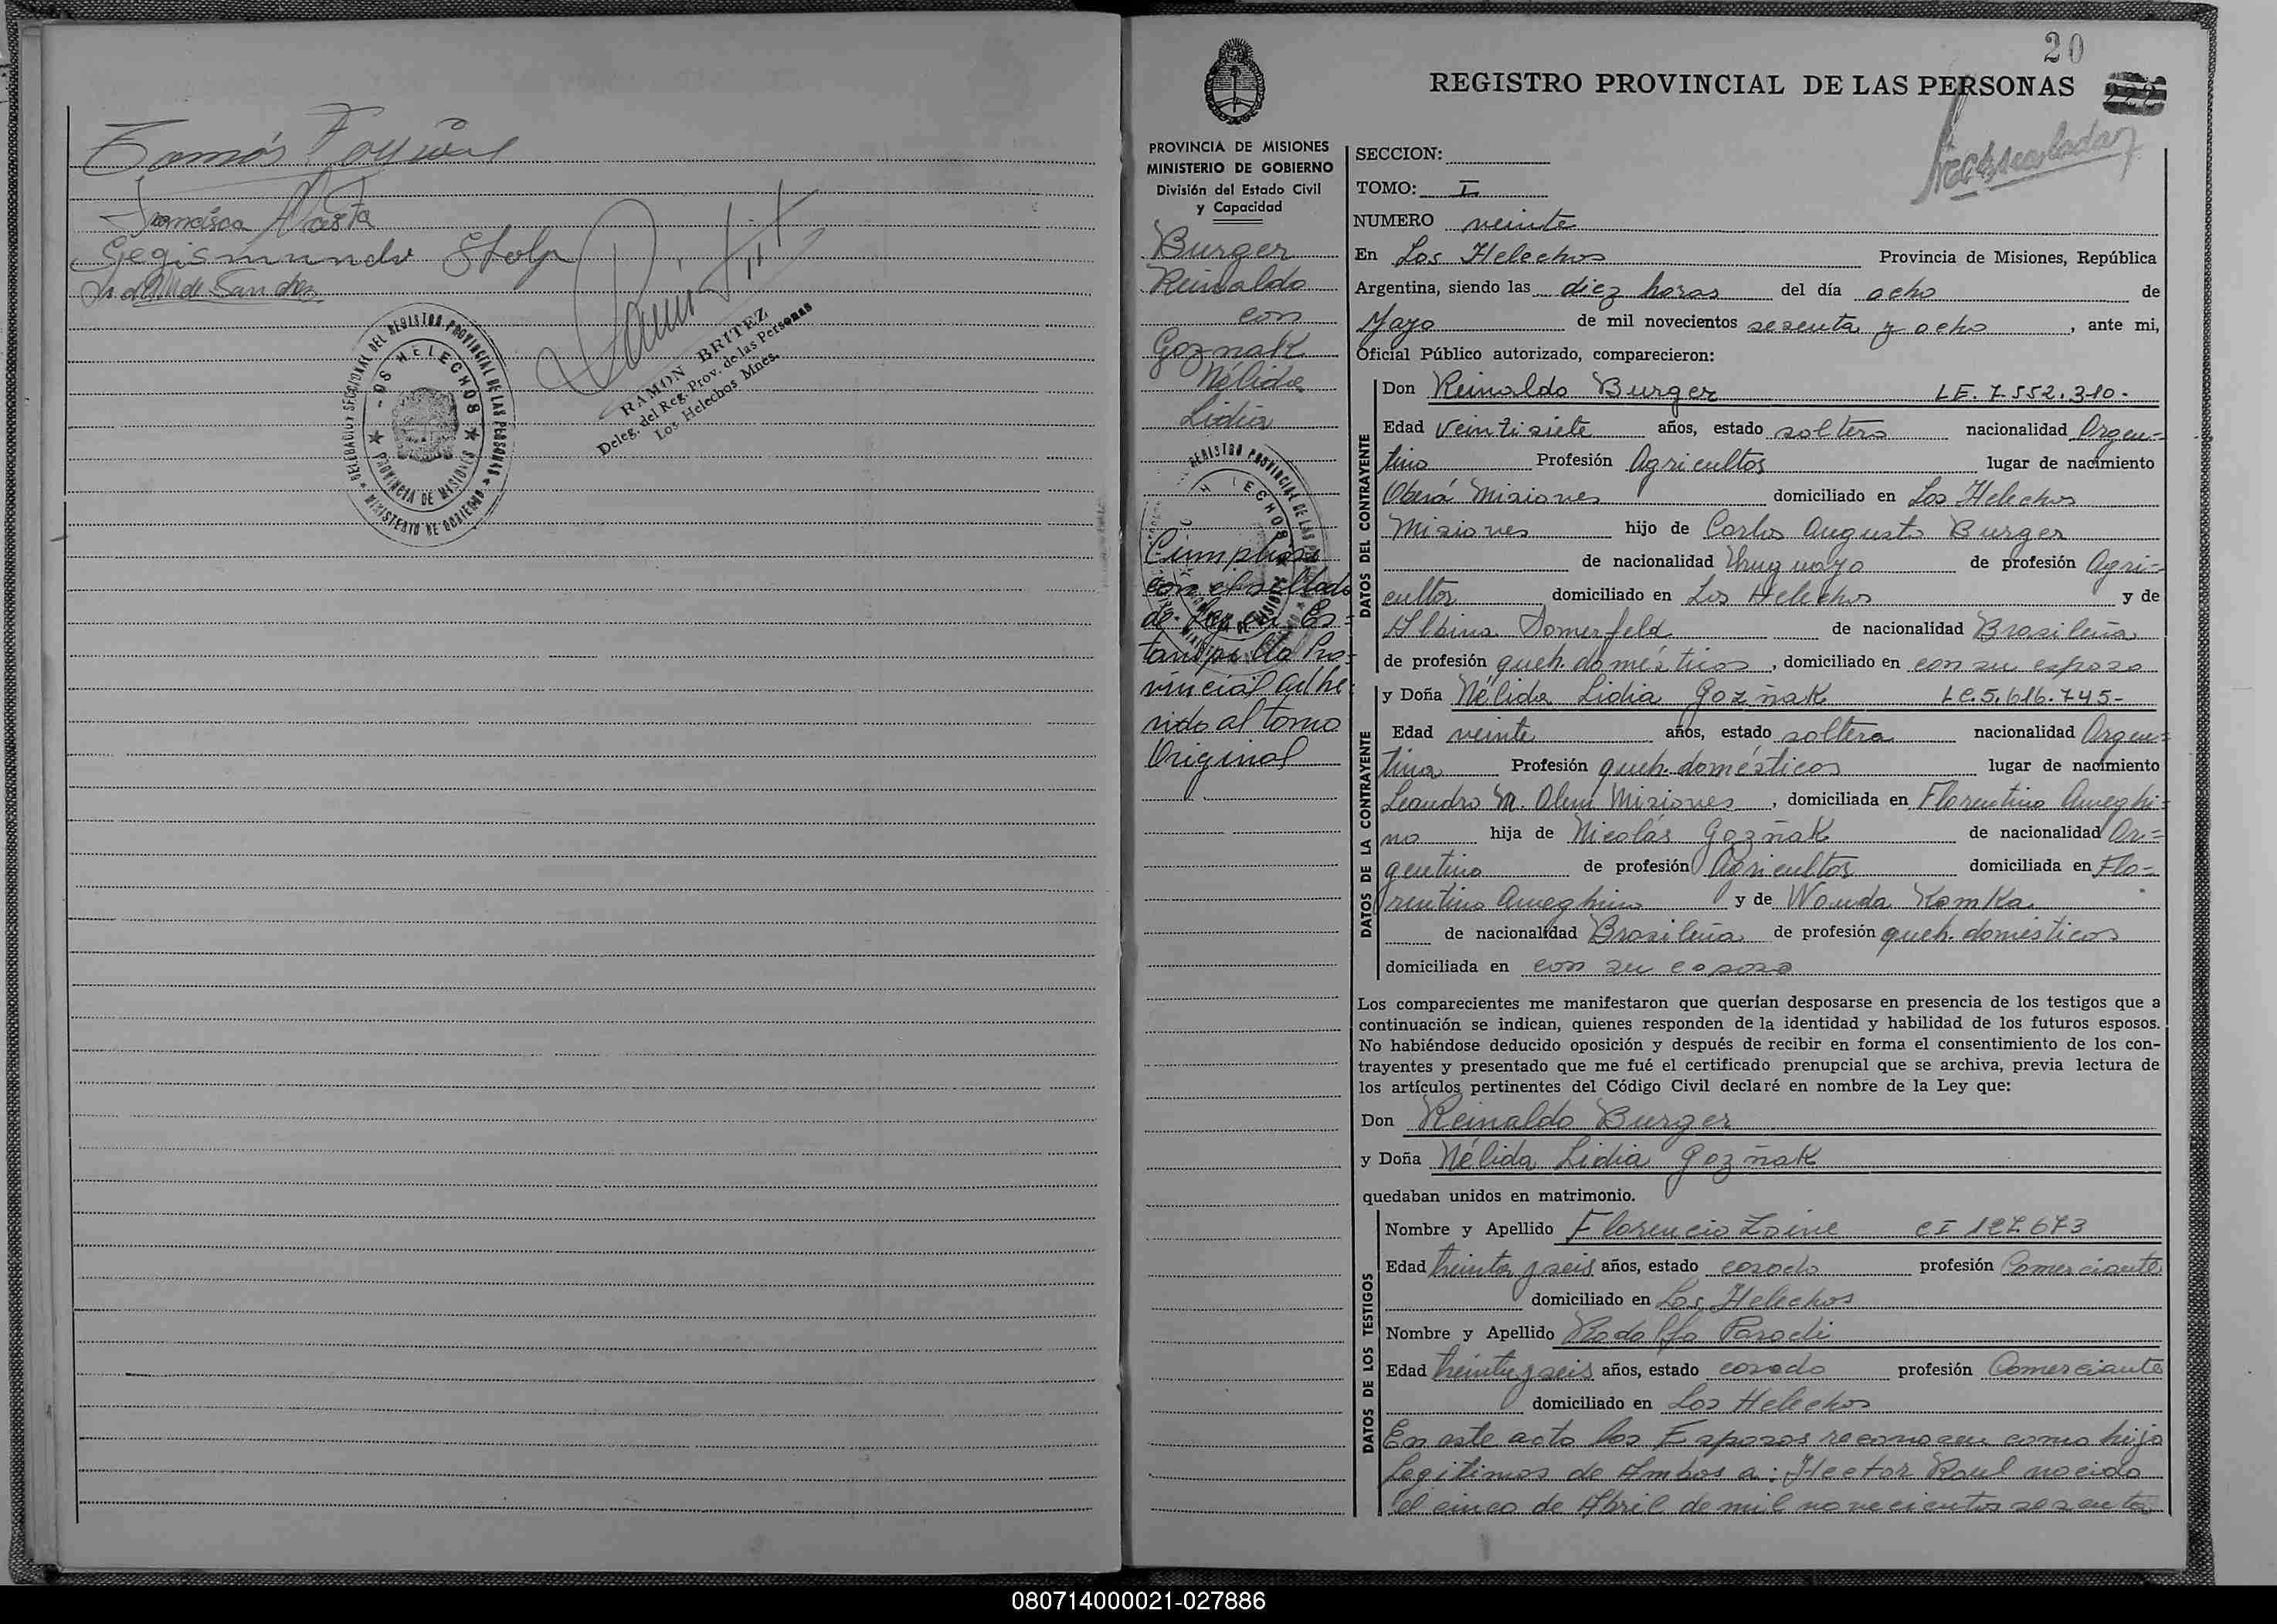 Francisca Acosta
Segismundo Stolp
DELEGACION SECCIONAL DEL REGISTRO PROVINCIAL DE LAS PERSONAS
MINISTERIO DE GOBIERNO
LOS HELECHOS
PROVINCIA DE MISIONES
RAMON BRITEZ
Deleg. del Reg. Prov. de las Personas
Los Helechos Mnes.
20
REGISTRO PROVINCIAL DE LAS PERSONAS
222
PROVINCIA DE MISIONES
MINISTERIO DE GOBIERNO
División del Estado Civil
y Capacidad
Burger
Reinaldo
con
Goznak
Nélida
Lidia
Cumplase
con el sellado
de Ley en Es=
tampilla Pro=
vincial adhe=
rido al tomo
Original
SECCION:
TOMO: I
NUMERO veinte
En Los Helechos Provincia de Misiones, República
Argentina, siendo las diez horas del día ocho de
Mayo de mil novecientos sesenta y ocho, ante mi,
Oficial Público autorizado, comparecieron:
DATOS DEL CONTRAYENTE
Don Reinaldo Burger LE. 7.552.310.-
Edad veintisiete años, estado soltero nacionalidad Argen=
tino Profesión Agricultor lugar de nacimiento
Oberá Misiones domiciliado en Los Helechos
Misiones hijo de Carlos Augusto Burger
de nacionalidad Uruguayo de profesión Agri=
cultor domiciliado en Los Helechos y de
Albina Somerfeld de nacionalidad Brasileña
de profesión queh. domésticos, domiciliado en con su esposo
DATOS DE LA CONTRAYENTE
y Doña Nélida Lidia Gozñak LC. 5.616.745-
Edad veinte años, estado soltera nacionalidad Argen=
tina Profesión queh. domésticos lugar de nacimiento
Leandro N. Alem Misiones, domiciliada en Florentino Ameghi=
no hija de Nicolás Gozñak de nacionalidad Ar=
gentino de profesión Agricultor domiciliada en Flo=
rentino Ameghino y de Wanda Komka
de nacionalidad Brasileña de profesión queh. domésticos
domiciliada en con su esposo
Los comparecientes me manifestaron que querían desposarse en presencia de los testigos que a
continuación se indican, quienes responden de la identidad y habilidad de los futuros esposos.
No habiéndose deducido oposición y después de recibir en forma el consentimiento de los con-
trayentes y presentado que me fué el certificado prenupcial que se archiva, previa lectura de
los artículos pertinentes del Código Civil declaré en nombre de la Ley que:
Don Reinaldo Burger
y Doña Nélida Lidia Gozñak
quedaban unidos en matrimonio.
DATOS DE LOS TESTIGOS
Nombre y Apellido Florencio Zaine CI 127.673
Edad treinta y seis años, estado casado profesión Comerciante
domiciliado en Los Helechos
Nombre y Apellido Rodolfo Parodi
Edad treinta y seis años, estado casado profesión Comerciante
domiciliado en Los Helechos
En este acto los Esposos reconocen como hijo
legitimos de Ambos a: Hector Raul nacido
el cinco de Abril de mil novecientos sesenta
080714000021-027886